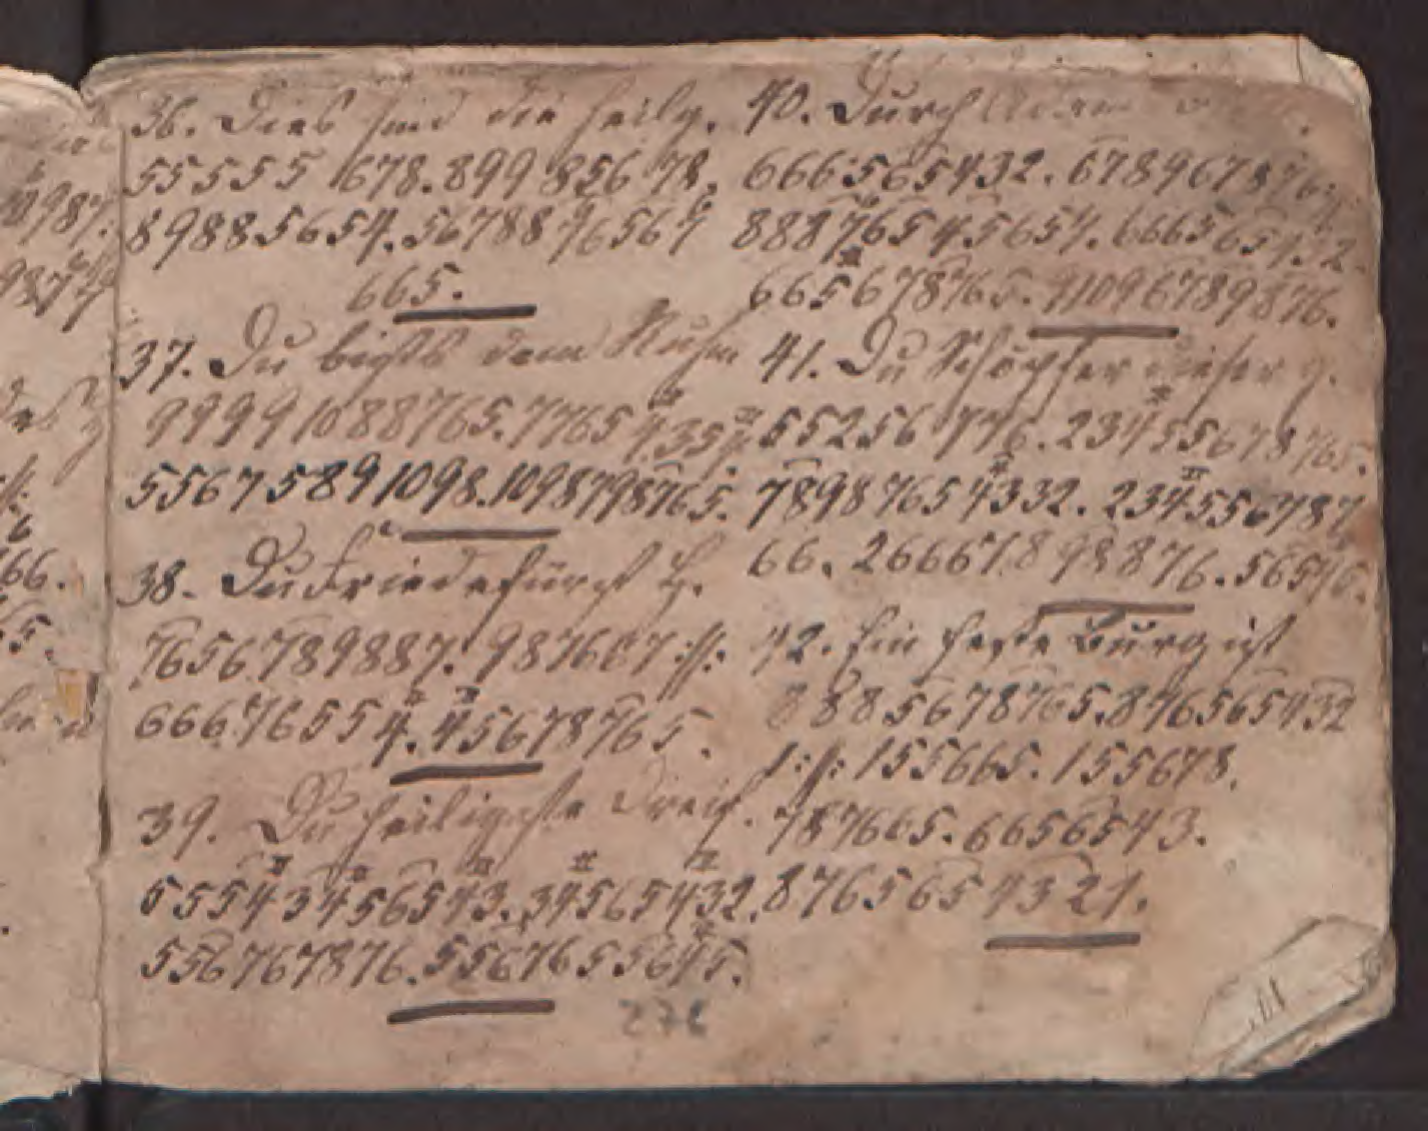 36. Dies sind die heilg.
55555 678.899 856 78.
89885654.5678896567
665.
37. Du bists dem Ruhm
99991088765.77654354
55675891098.1098798765.
38. Du Friedefürst H.
7656789887. 987667:||:
66676554.45678765.
39. Du heiligste Dreif.
55543456543.34565432.
556767876.5567655645.
276
40. Durch Adam
666565432.678967876.
88876545654.666565432.
66567878765.9109678987 6.
41. Du Schöpfer dieser g.
55256 776.23455678765.
7898765 4332. 234556787
66. 26667898876.56546.
42. Ein feste Burg ist
888567878765.876565432
1:||:155665.155678.
787665.6656543.
8765654321.